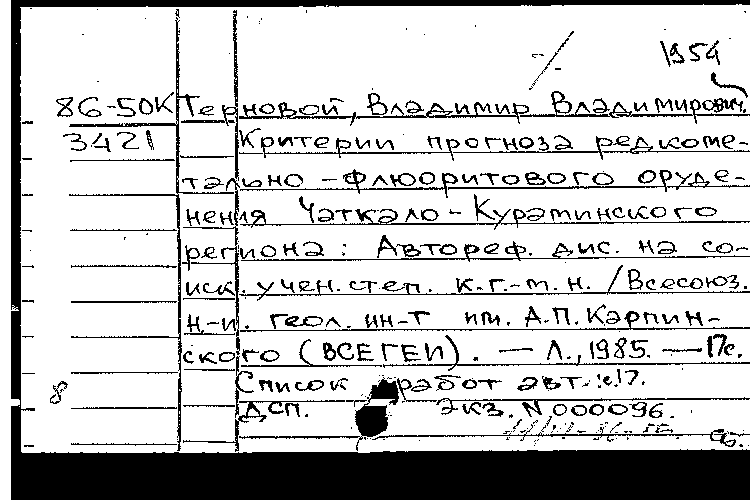 1954
86-50К Терновой, Владимир Владимирович.
3421 Критерии прогноза редкоме-
тально-флюоритового оруде-
нения Чаткало-Кураминского
региона: Автореф. дис. на со-
иск. учен. степ. к.г.-м.н. /Всесоюз.
н.-и. геол. ин-т им. А.П. Карпин-
ского (ВСЕГЕИ). — Л., 1985. — 17с.
Список работ авт.: с.17.
8 ДСП. Экз. N 000096.
сб.